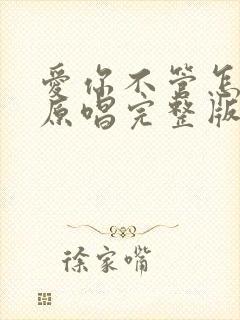 爱你不管怎
原唱完整版
徐家嘴